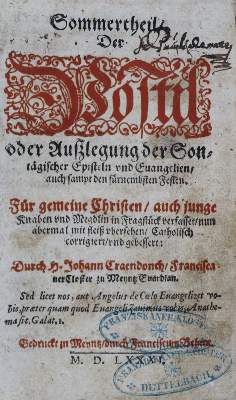 Sommertheil
Der
Postil
oder Außlegung der Son-
tägischer Episteln vnd Euangelien/
auch sampt den fürnembsten Festen.
Für gemeine Christen/ auch junge
Knaben vnd Mägdlin in Fragstück verfasset/ nun
abermal mit fleiß vbersehen/ Catholisch
corrigiert/ vnd gebessert:
Durch H. Johann Craendonch/ Francisca-
ner Closter zu Meyntz Guardian.
Sed licet nos, aut Angelus de Cœlo Euangelizet vo-
bis, præter quam quod Euangelizauimus vobis, Anathe-
ma sit. Galat. 1.
Gedruckt zu Meyntz/ durch Franciscum Behem.
M. D. LXXXI.
FRANZISKANER-KLOSTER
DETTELBACH